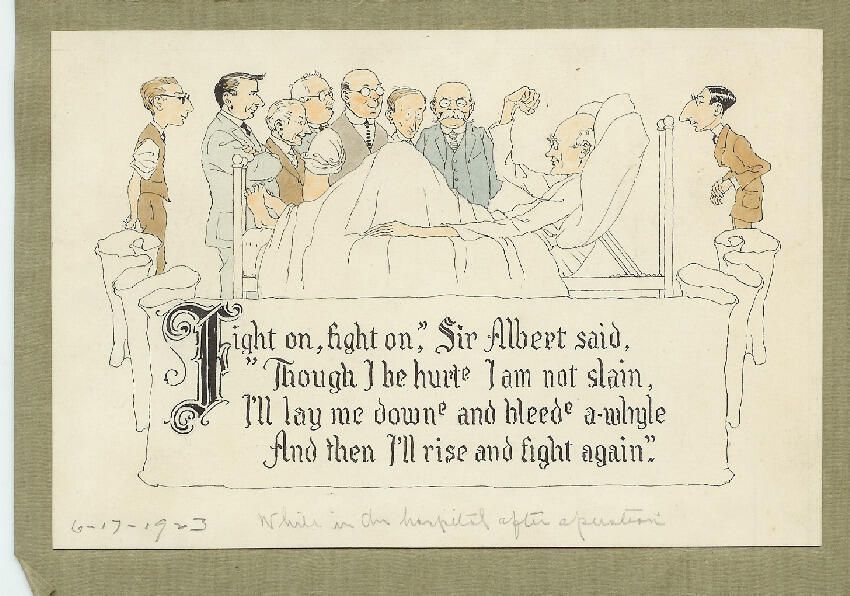 Fight on, fight on," Sir Albert said,
"Though I be hurte I am not slain,
I'll lay me downe and bleede a-whyle
And then I'll rise and fight again".
6-17-1923
While in the hospital after operation